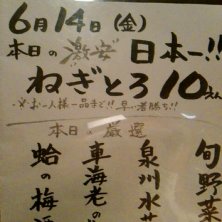 6月14日(金)
本日の激安 日本一!!
ねぎとろ10えん
※お一人様一品まで!!早い者勝ち!!
本日の厳選
旬野菜
泉州水
車海老の
蛤の梅酒